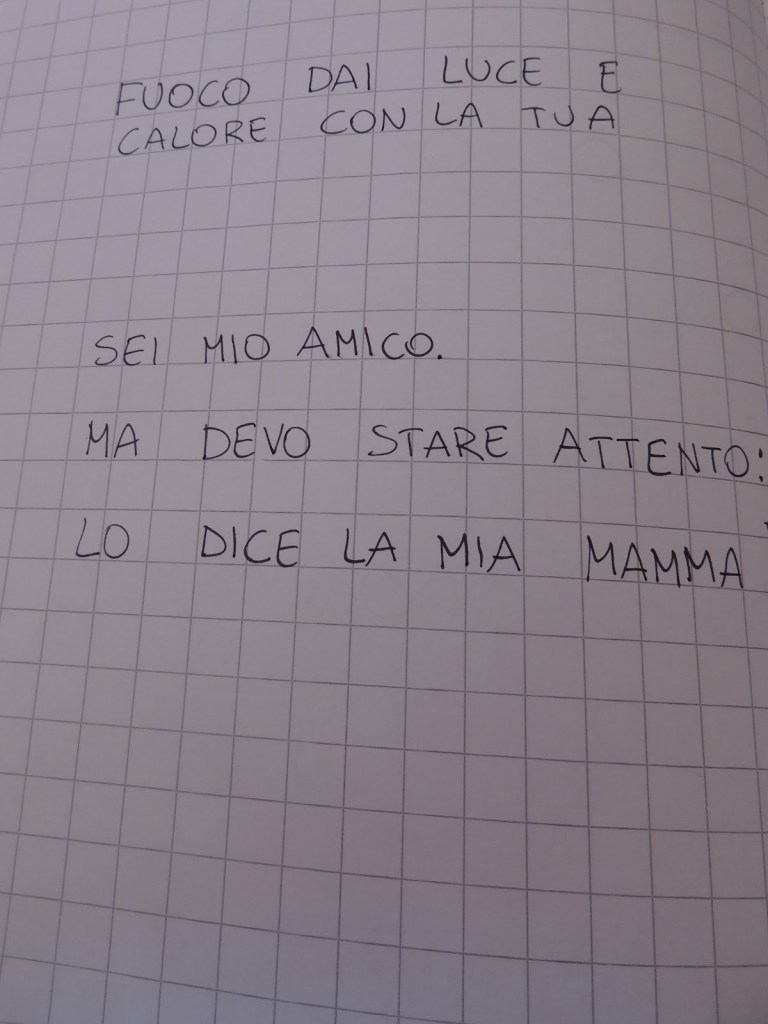 FUOCO DAI LUCE E
CALORE CON LA TUA
SEI MIO AMICO.
MA DEVO STARE ATTENTO:
LO DICE LA MIA MAMMA